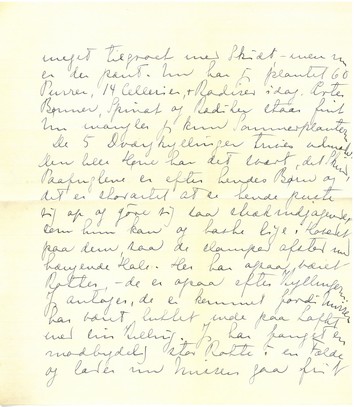 meget tilgroet med Skidt – men nu
er der pænt. Nu har jeg plantet 60
Purrer, 14 Cellerier, + Radiser idag. Ærter
Bønner, Spinat og Radiser staar fint
Nu mangler jeg kun Sommerplanterne
De 5 Dværgkyllinger trives
den lille Høne har det svært, det
Paafuglene er efter hendes Børn og
det er skrækkeligt at se hende puste
sig op og gøre sig saa skrækindjagende
som hun kan og baske lige i Hovedet
paa dem, saa de slamper afsted med
hængende Hale. Her har ogsaa været
Rotter, – de er ogsaa efter Kyllingerne.
Jeg antager, de er kommet fordi Missen
har været lukket inde paa Loftet
med sin Killing. Jeg har fanget en
modbydelig stor Rotte i en Fælde
og lader nu Missen gaa frit